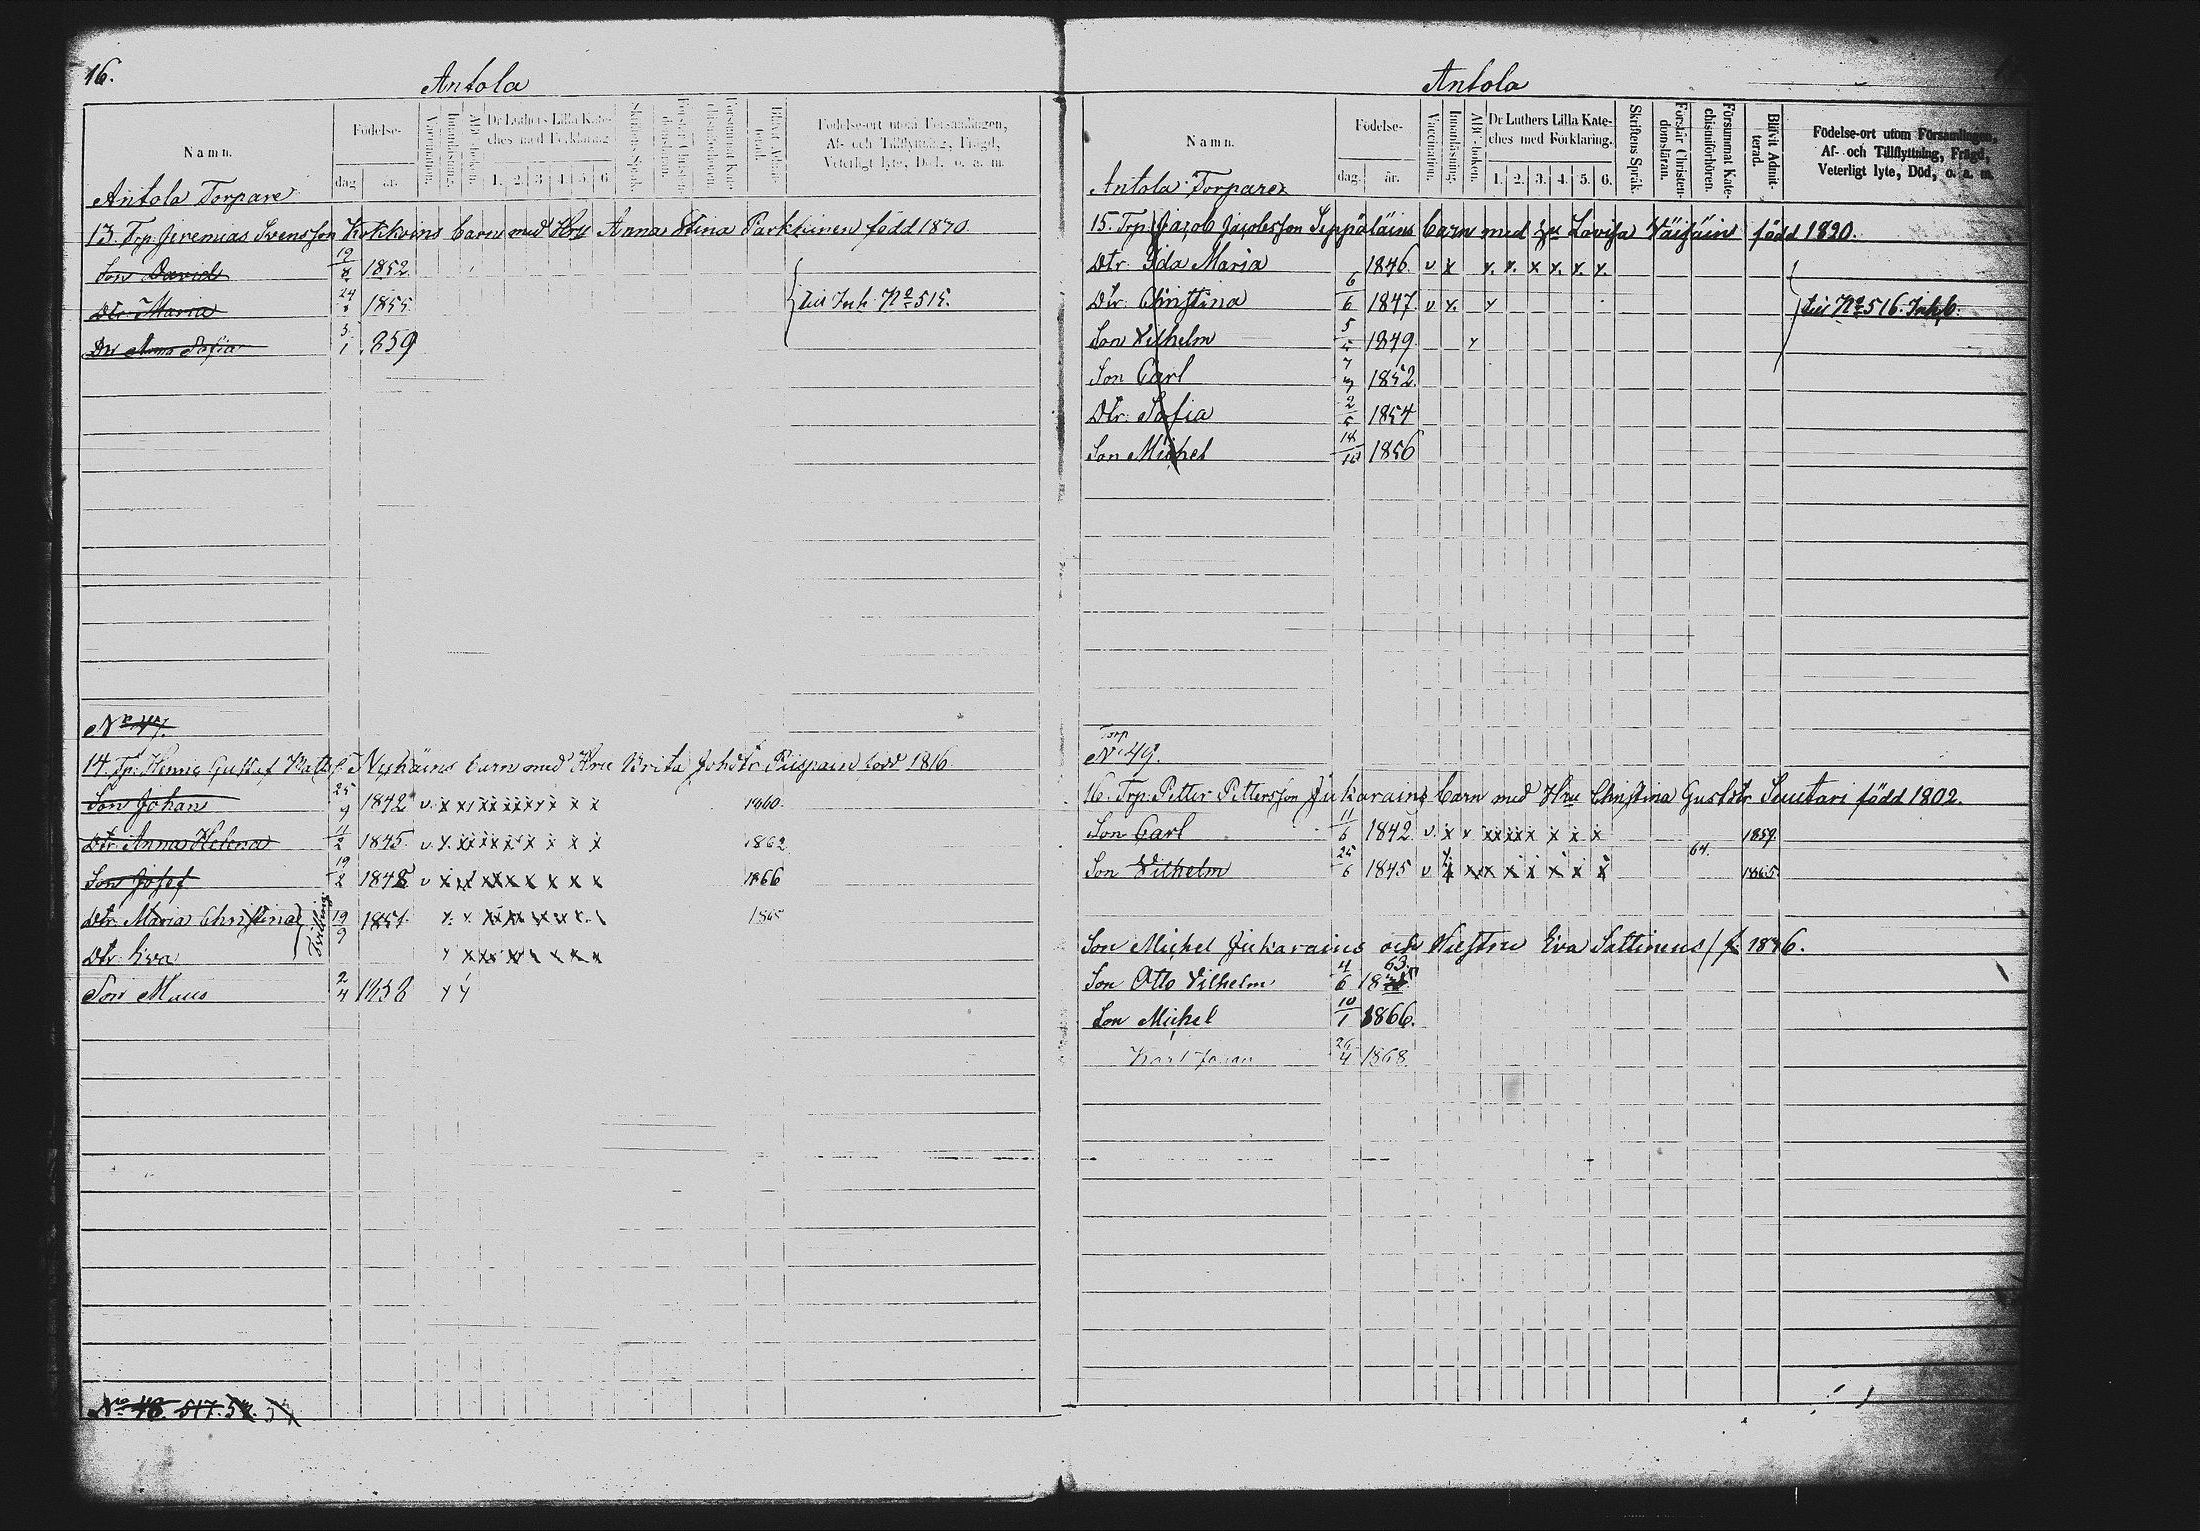 16.
Antola
Namn.
Födelse-
dag
år.
Vaccination.
Innanläsning.
ABC-boken.
Dr Luthers Lilla Kate-
ches med Förklaring.
1. 2. 3. 4. 5. 6.
Skriftens Språk.
Förstår Christen-
domsläran.
Försummat Kate-
chismiförhören.
Blifvit Admit-
terad.
Födelse-ort utom Församlingen,
Af- och Tillflyttning, Frägd,
Veterligt lyte, Död, o. a. m.
Antola Torpare
13. Trp. Jeremias Svensson Kokkoins barn med Hru Anna Stina Parkkinen född 1870
Son David 19/8 1852
Dtr. Maria 24 1855 till Inh. No 515.
Dtr Anna Sofia 3/1 1859
No 47.
14. Trp. Henric Gustaf Nyhäins barn med Hru Brita Johdtr Piispain född 1816
Son Johan 25/9 1842 v. x x x x x x x x x 1860
Dtr Anna Helena 4/2 1845. v. x. x x x x x x x 1862
Son Josef 19/2 1848 v x x x x x x x x 1866
Dtr Maria Christina 19/9 1851 x x x x x x x x 1865
Tvilling
Dtr Eva x x x x x x x
Son Maus 2/4 1858
No 48. 517.
Antola
Namn.
Födelse-
dag.
år.
Vaccination.
Innanläsning.
ABC-boken.
Dr Luthers Lilla Kate-
ches med Förklaring.
1. 2. 3. 4. 5. 6.
Skriftens Språk.
Förstår Christen-
domsläran.
Försummat Kate-
chismiförhören.
Blifvit Admit-
terad.
Födelse-ort utom Församlingen,
Af- och Tillflyttning, Frägd,
Veterligt lyte, Död, o. a. m.
Antola Torpare
15. Trp Jacob Jacobsson Seppäläins barn med Hru Lovisa Väisäin född 1820.
Dtr. Ida Maria 1846. v x x. x. x x. x. x.
Dtr. Christina 6/6 1847. v x. x till No 516. Inhb.
Son Vilhelm 5/5 1849 x
Son Carl 7/7 1852.
Dtr. Sofia 2/5 1854
Son Michel 18/10 1856
Torp
No 49.
16. Trp. Petter Pettersson Jukarains barn med Hru Christina Gustdtr Suutari född 1802.
Son Carl 11/6 1842 v. x x x x x x x x x 1859.
Son Vilhelm 25/6 1845 v x x x x x x x x 64. 1865
Son Michel Jukarains och Hustru Eva Sattinens f. 1846.
Son Otto Vilhelm 4/6 1863
Son Michel 10/1 1866.
Karl Johan 26/4 1868